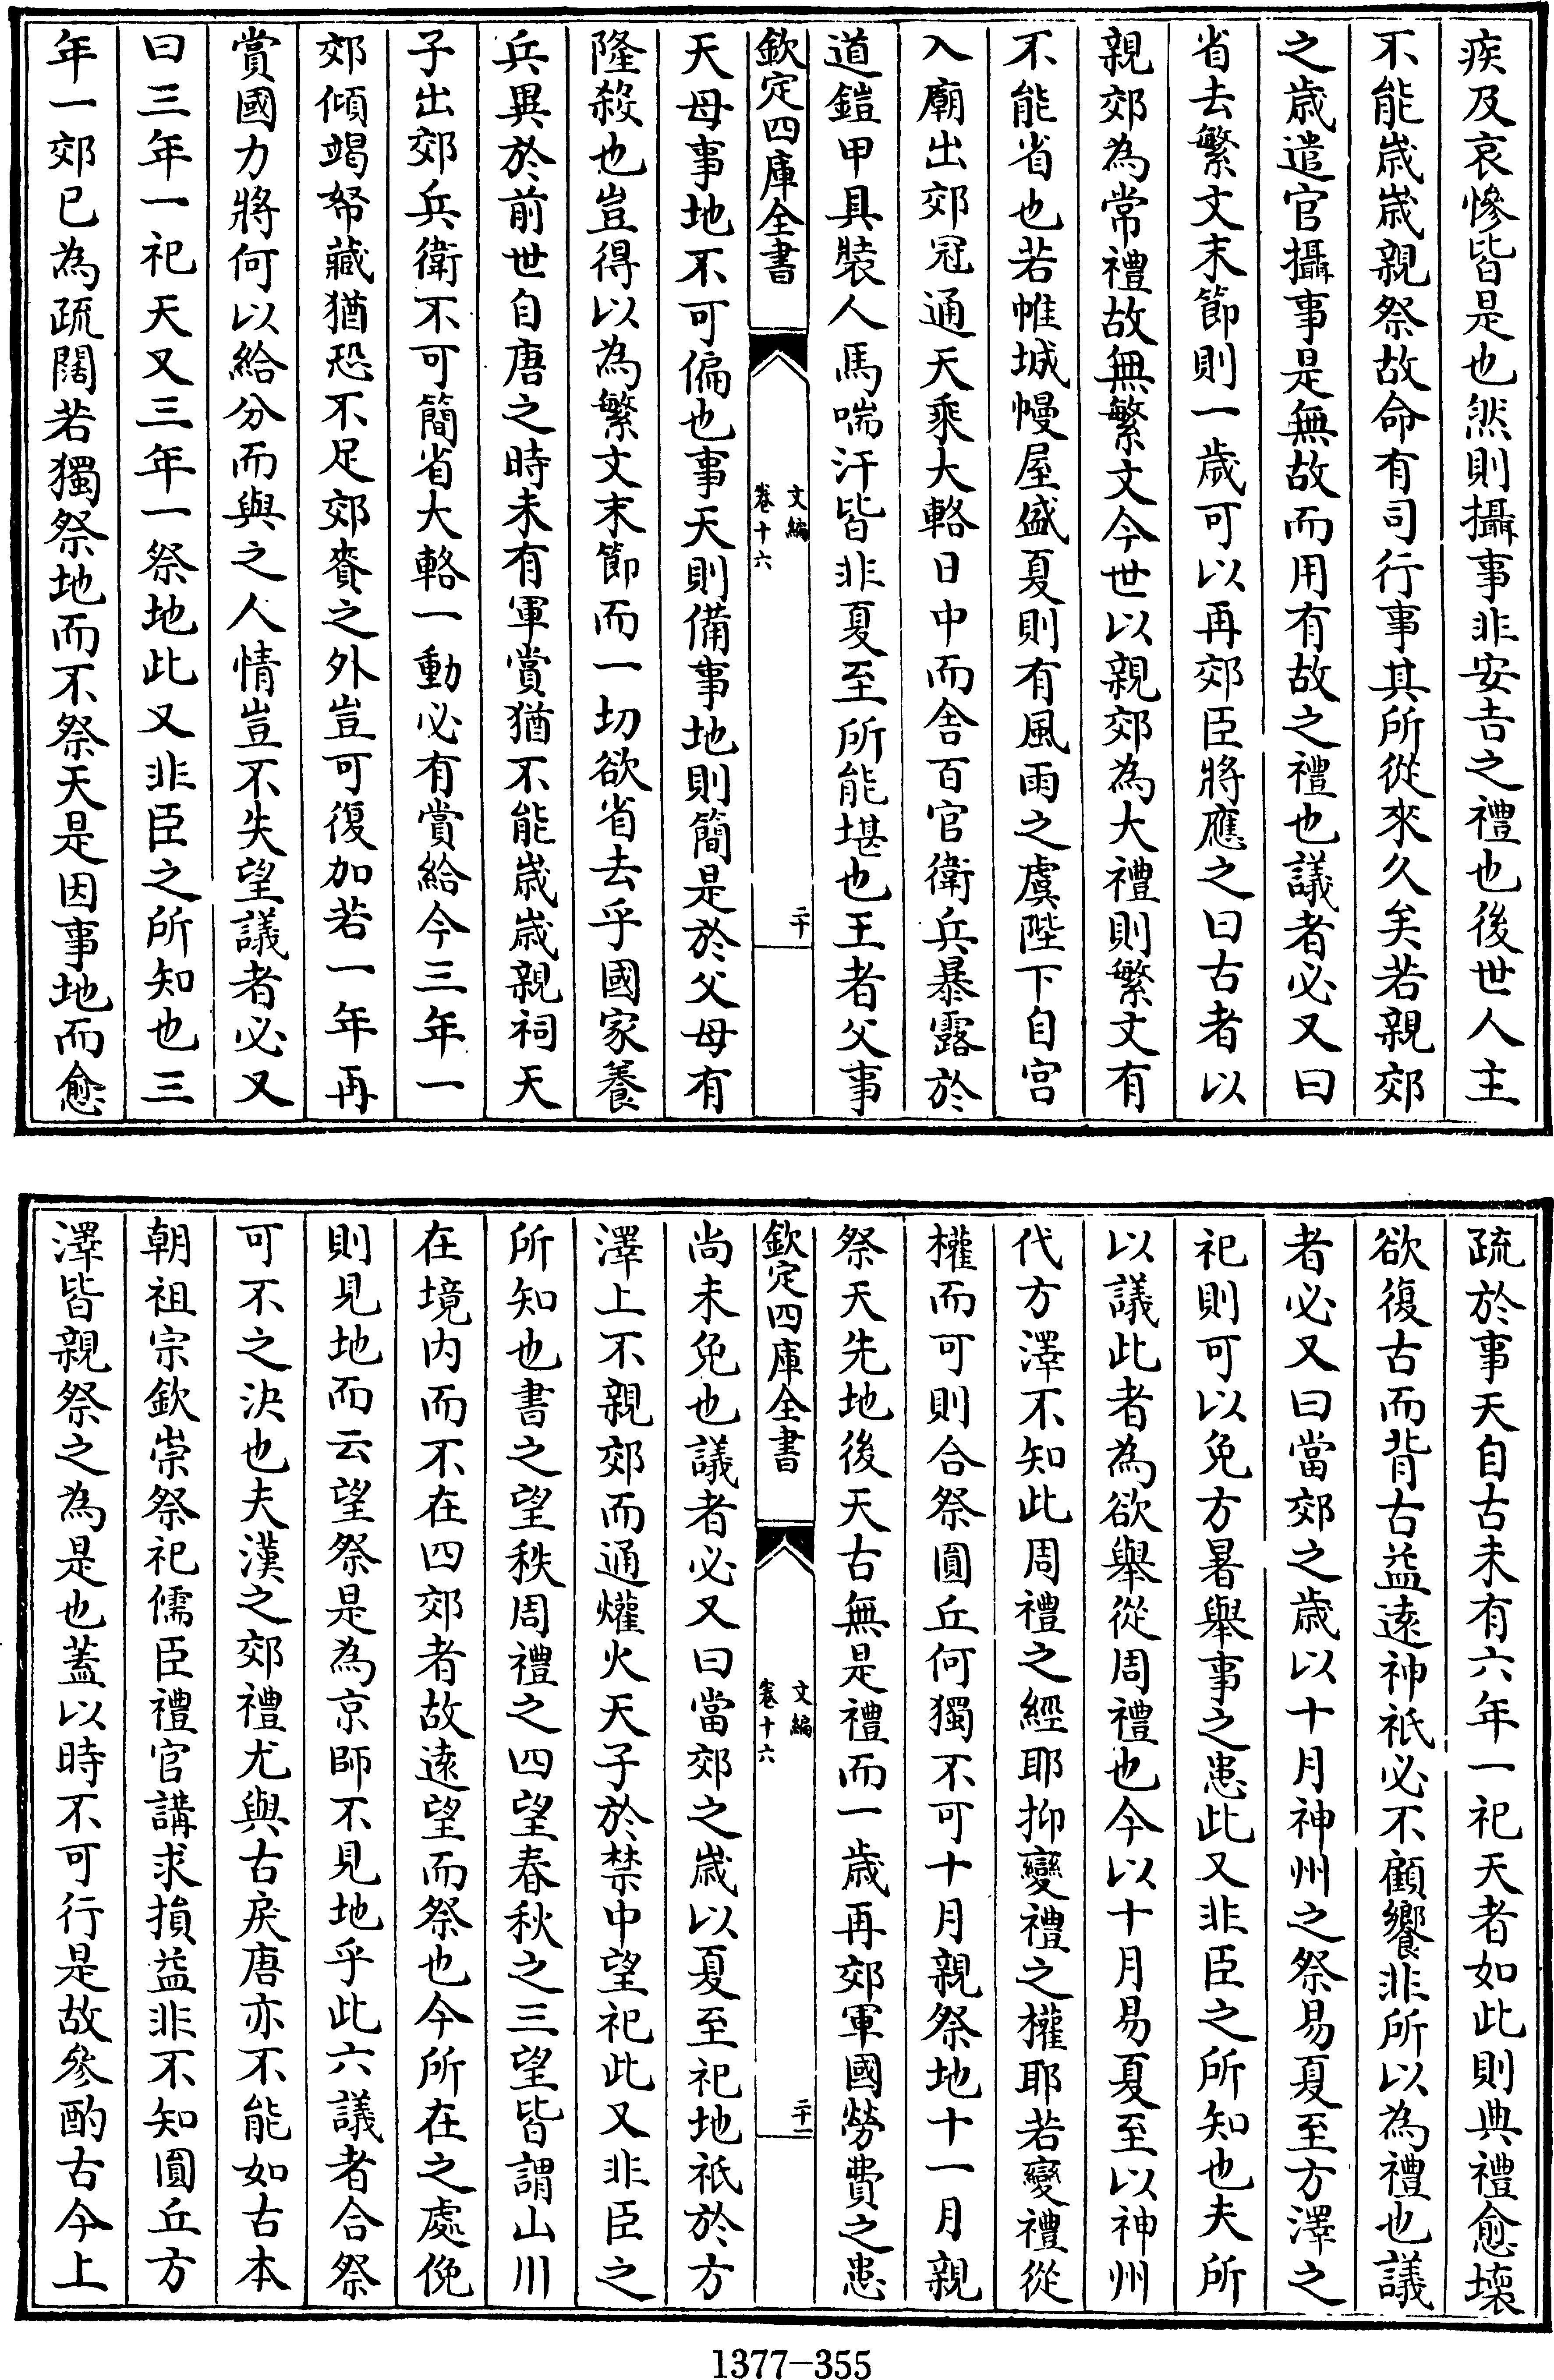 疾及哀慘皆是也然則攝事非安吉之禮也後世人主
不能歲歲親祭故命有司行事其所從來久矣若親郊
之歲遣官攝事是無故而用有故之禮也議者必又曰
省去繁文末節則一歲可以再郊臣將應之曰古者以
親郊為常禮故無繁文今世以親郊為大禮則繁文有
不能省也若帷城幔屋盛夏則有風雨之虞陛下自宮
入廟出郊冠通天乘大輅日中而舍百官衛兵暴露於
道鎧甲具裝人馬喘汗皆非夏至所能堪也王者父事
欽定四庫全書
文編
卷十六
二十
天母事地不可偏也事天則備事地則簡是於父母有
隆殺也豈得以為繁文末節而一切欲省去乎國家養
兵異於前世自唐之時未有軍賞猶不能歲歲親祠天
子出郊兵衛不可簡省大輅一動必有賞給今三年一
郊傾竭帑藏猶恐不足郊賚之外豈可復加若一年再
賞國力將何以給分而與之人情豈不失望議者必又
曰三年一祀天又三年一祭地此又非臣之所知也三
年一郊已為疏闊若獨祭地而不祭天是因事地而愈
疏於事天自古未有六年一祀天者如此則典禮愈壞
欲復古而背古益遠神祇必不顧饗非所以為禮也議
者必又曰當郊之歲以十月神州之祭易夏至方澤之
祀則可以免方暑舉事之患此又非臣之所知也夫所
以議此者為欲舉從周禮也今以十月易夏至以神州
代方澤不知此周禮之經耶抑變禮之權耶若變禮從
權而可則合祭圓丘何獨不可十月親祭地十一月親
祭天先地後天古無是禮而一歲再郊軍國勞費之患
欽定四庫全書
文編
卷十六
二十一
尚未免也議者必又曰當郊之歲以夏至祀地祇於方
澤上不親郊而通爟火天子於禁中望祀此又非臣之
所知也書之望秩周禮之四望春秋之三望皆謂山川
在境内而不在四郊者故遠望而祭也今所在之處俛
則見地而云望祭是為京師不見地乎此六議者合祭
可不之決也夫漢之郊禮尤與古戾唐亦不能如古本
朝祖宗欽崇祭祀儒臣禮官講求損益非不知圓丘方
澤皆親祭之為是也蓋以時不可行是故參酌古今上
1377-355